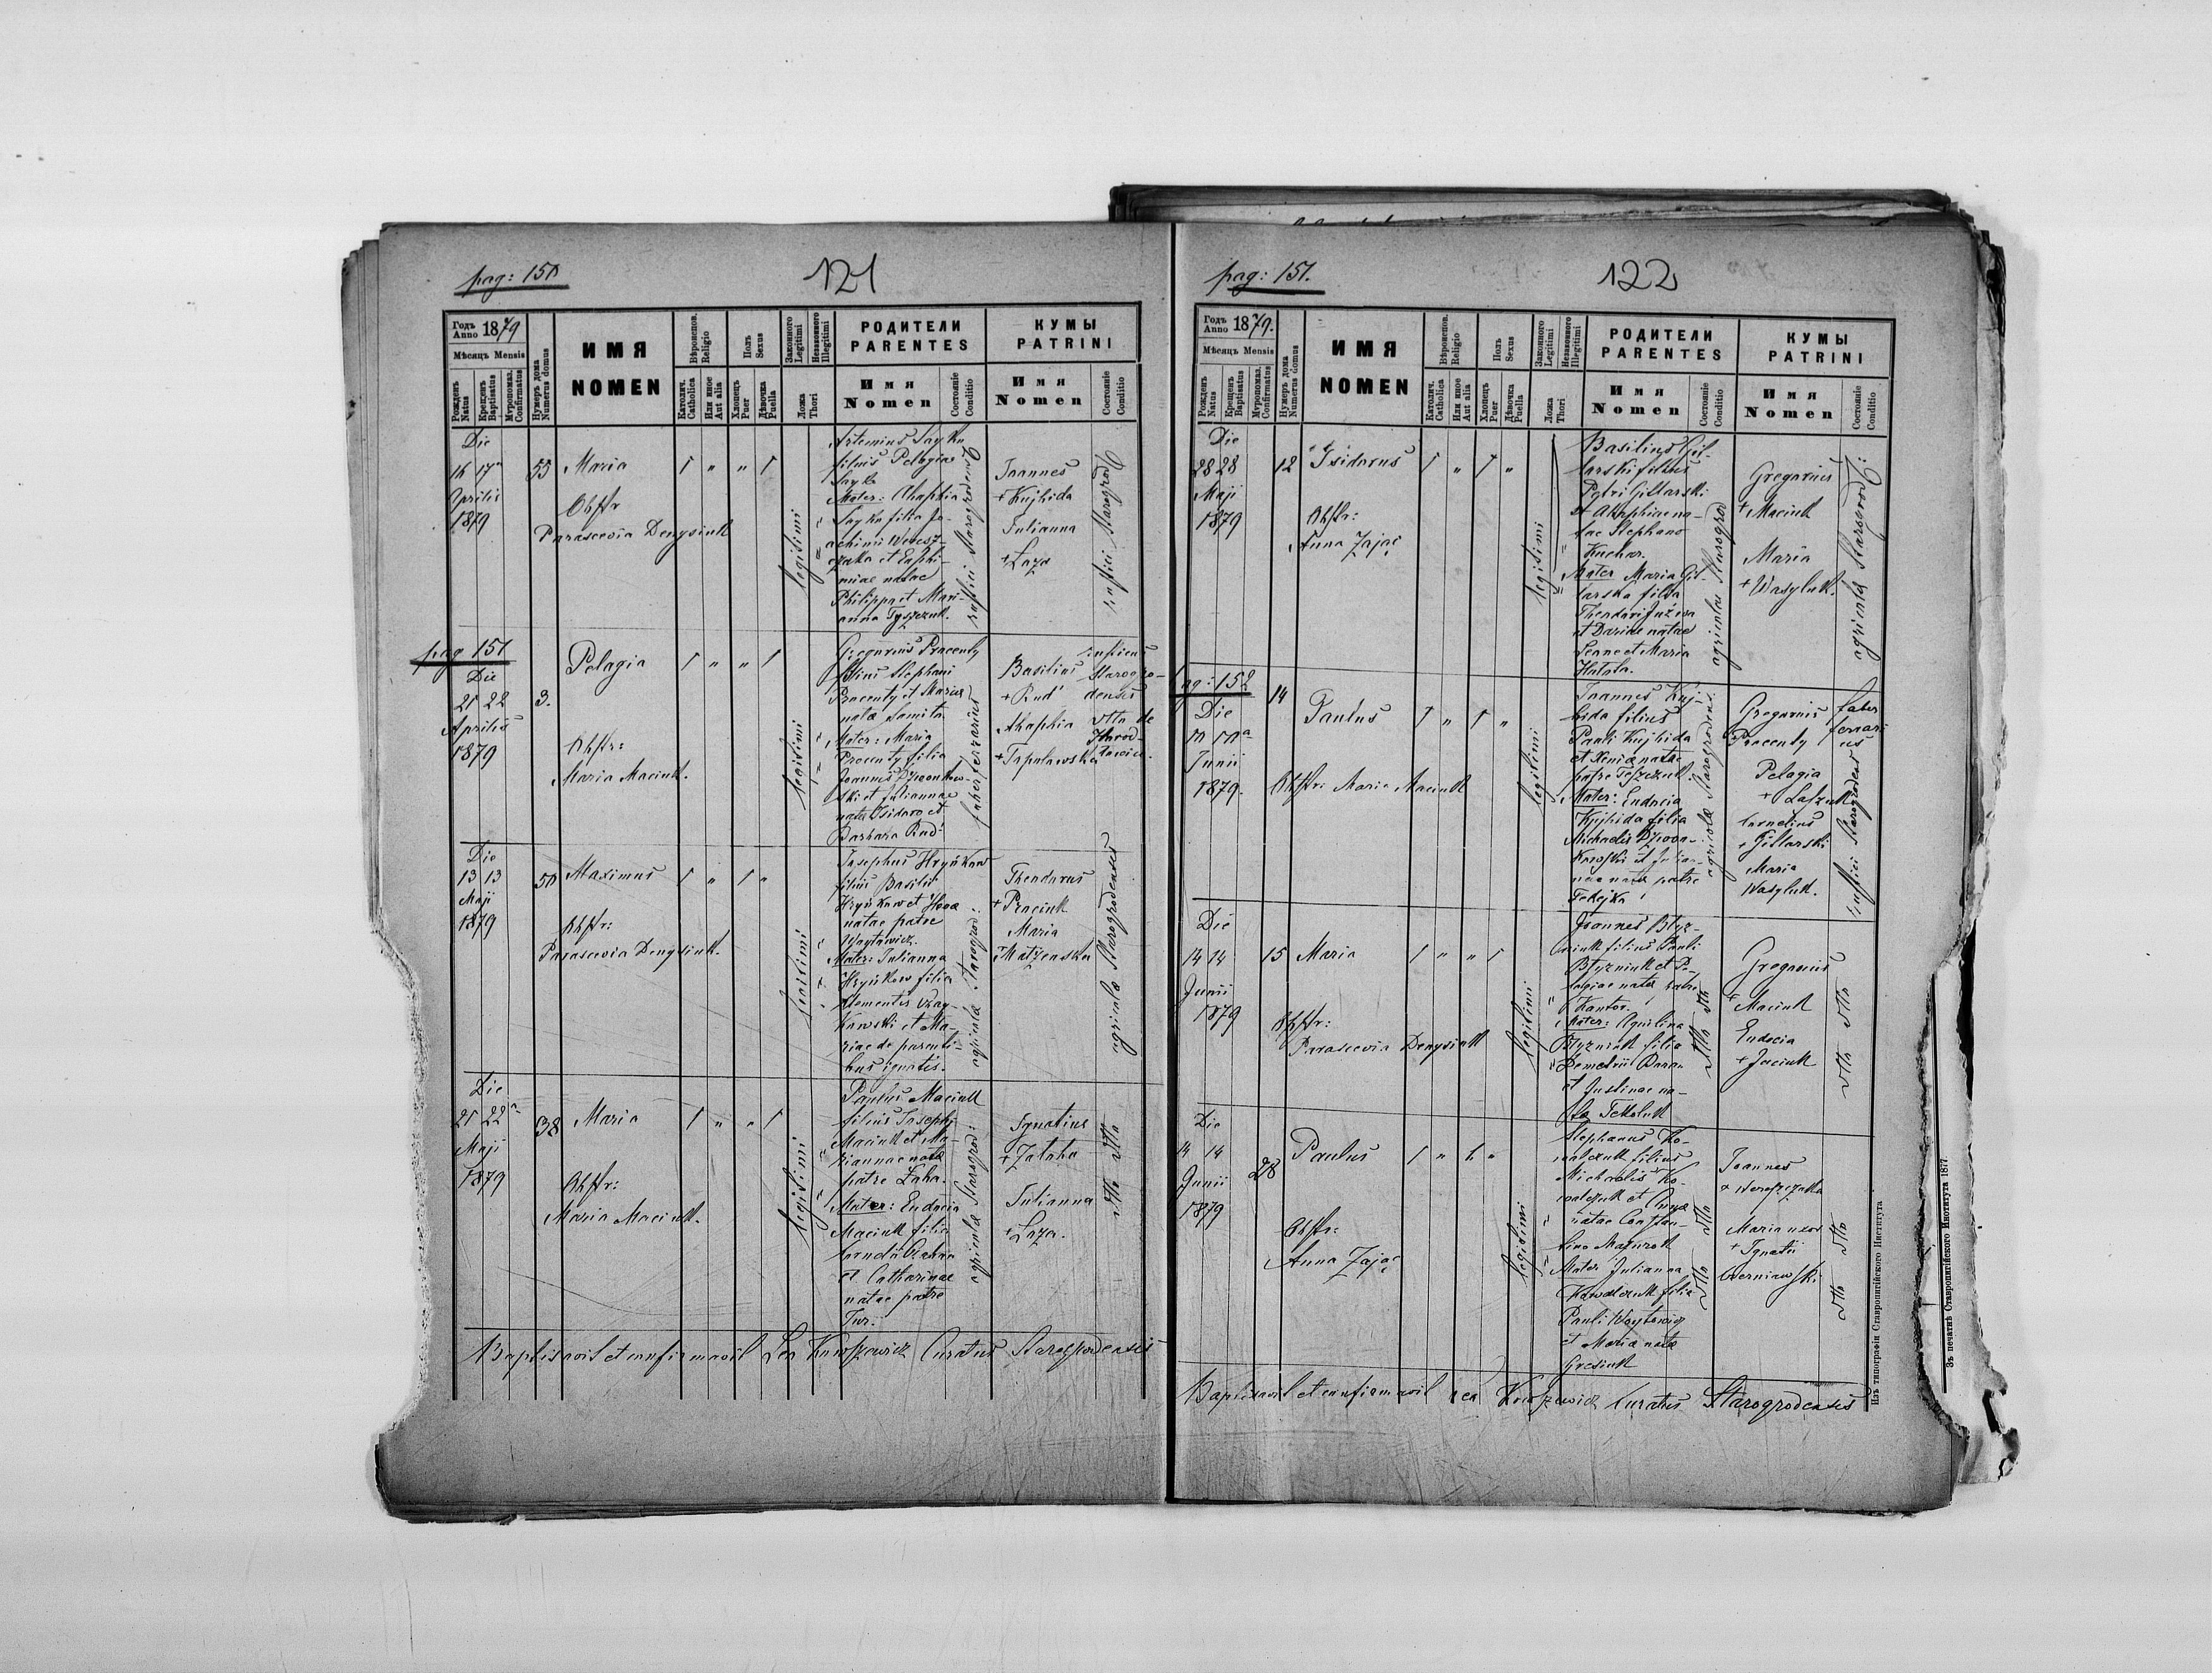 pag: 150
121
Годъ Anno 1879
Мѣсяцъ Mensis
Рожденъ Natus
Крещенъ Baptisatus
Мѵропомаз. Confirmatus
Нумеръ дома Numerus domus
ИМЯ
NOMEN
Вѣроисповъ. Religio
Католич. Catholica
Или иное Aut alia
Полъ Sexus
Хлопецъ Puer
Дѣвочка Puella
Законного Legitimi
Незаконного Illegitimi
Ложа Thori
РОДИТЕЛИ
PARENTES
Имя
Nomen
Состояніе Conditio
КУМЫ
PATRINI
Имя
Nomen
Состояніе Conditio
Die
16 17a
Aprilis
1879
55
Maria
Obstr
Parascevia Denysiuk
legitimi
Artemius Sayko
filius Pelagiae
Sayko
Mater: Ahaphia
Sayko filia Jo-
achimi Weresz-
czaka et Euphi-
miae natae
Philippo et Mari-
anna Tyszczuk.
rustici Starogrodenses
Joannes
+ Kujbida
Julianna
+ Laza
rustici Starogrod
pag 151
Die
21 22
Aprilis
1879
3.
Pelagia
Obstr:
Maria Maciuk.
legitimi
Gregorius Procenty
filius Stephani
Procenty et Mariae
natae Samita
Mater: Maria
Procenty filia
Joannis Dzwonkow-
ski et Juliannae
natae Isidoro et
Barbara Rud'
faber ferrarius
Basilius
+ Rud'
Ahaphia
rusticus
Starogro-
densis
Die
13 13
Maji
1879
50
Maximus
Obstr:
Parascevia Denysiuk.
legitimi
Josephus Hryńkow
filius Basilii
Hryńkow et Evae
natae patre
Woytowicz.
Mater: Julianna
Hryńkow filia
Klementis
et Ma-
riae de parenti-
bus ignotis.
agricolae Starogrod:
Theodorus
+ Praciuk
Maria
+ Matzenska
agricolae Starogrodenses
Die
21 22a
Maji
1879
38
Maria
Obstr:
Maria Maciuk.
legitimi
Paulus Maciuk
filius Josephi
Maciuk et Ma-
riannae nata
patre Laha.
Mater: Eudocia
Maciuk filia
et Catharinae
natae patre
Tur.
agricolae Starogrod:
Ignatius
+ Zataha
Julianna
+ Laza.
dtto dtto
Baptisavit et confirmavit Leo Knoszewicz Curatus Starogrodensis
pag: 151.
122
Годъ Anno 1879.
Мѣсяцъ Mensis
Рожденъ Natus
Крещенъ Baptisatus
Мѵропомаз. Confirmatus
Нумеръ дома Numerus domus
ИМЯ
NOMEN
Вѣроисповъ. Religio
Католич. Catholica
Или иное Aut alia
Полъ Sexus
Хлопецъ Puer
Дѣвочка Puella
Законного Legitimi
Незаконного Illegitimi
Ложа Thori
РОДИТЕЛИ
PARENTES
Имя
Nomen
Состояніе Conditio
КУМЫ
PATRINI
Имя
Nomen
Состояніе Conditio
Die
28 28
Maji
1879
12
Isidorus
Obstr:
Anna Zając
legitimi
Basilius Gil-
larski filius
Petri Gillarski
et Ahaphiae na-
tae Stephano
Kuchar.
Mater Maria Gil-
larska filia
Theodori
et Dariae natae
Leone et Maria
Hatala.
agricolae Starogrod
Gregorius
+ Maciuk
Maria
+ Wasyluk.
agricolae Starogrod:
pag: 152
Die
10 10a
Junii
1879.
14
Paulus
Obstr: Maria Maciuk
legitimi
Joannes Kuj-
bida filius
Pauli Kujbida
et Xeniae natae
patre Teszczuk
Mater: Eudocia
Kujbida filia
Michaelis Dzwon-
kowski et Julian-
nae natae patre
Fekijka
agricolae Starogrodens:
Gregorius
Procenty
Pelagia
+ Laszuk
Cornelius
+ Gillarski
Maria
Wasyluk.
faber
ferrari
us
rustici Starogrodens
Die
14 14
Junii
1879
15
Maria
Obstr:
Parascevia Denysiuk
legitimi
Joannes Blyz-
niuk filius Pauli
Blyzniuk et Pe-
lagiae natae patre
Kantor
Mater: Aquilina
Blyzniuk filia
Demetrii Baran
et Justinae na-
ta Tekoluk
dtto dtto
Gregorius
+ Maciuk
Eudocia
+ Jaciuk
dtto dtto
Die
14 14
Junii
1879
28
Paulus
Obstr:
Anna Zając
legitimi
Stephanus Ko-
walczuk filius
Michaelis Ko-
walczuk et Anna
natae Constan-
tino Mazurok
Mater Julianna
Kowalczuk filia
Pauli Woytowicz
et Maria nata
Gresiuk
dtto dtto
Joannes
+ Wereszczaka
Maria uxor
+ Ignatii
Czerniawski
dtto dtto
Baptisavit et confirmavit Leo Knoszewicz Curatus Starogrodensis
Изъ типографіи Ставропигійского Института
Зъ печатнѣ Ставропигійского Института 1877.